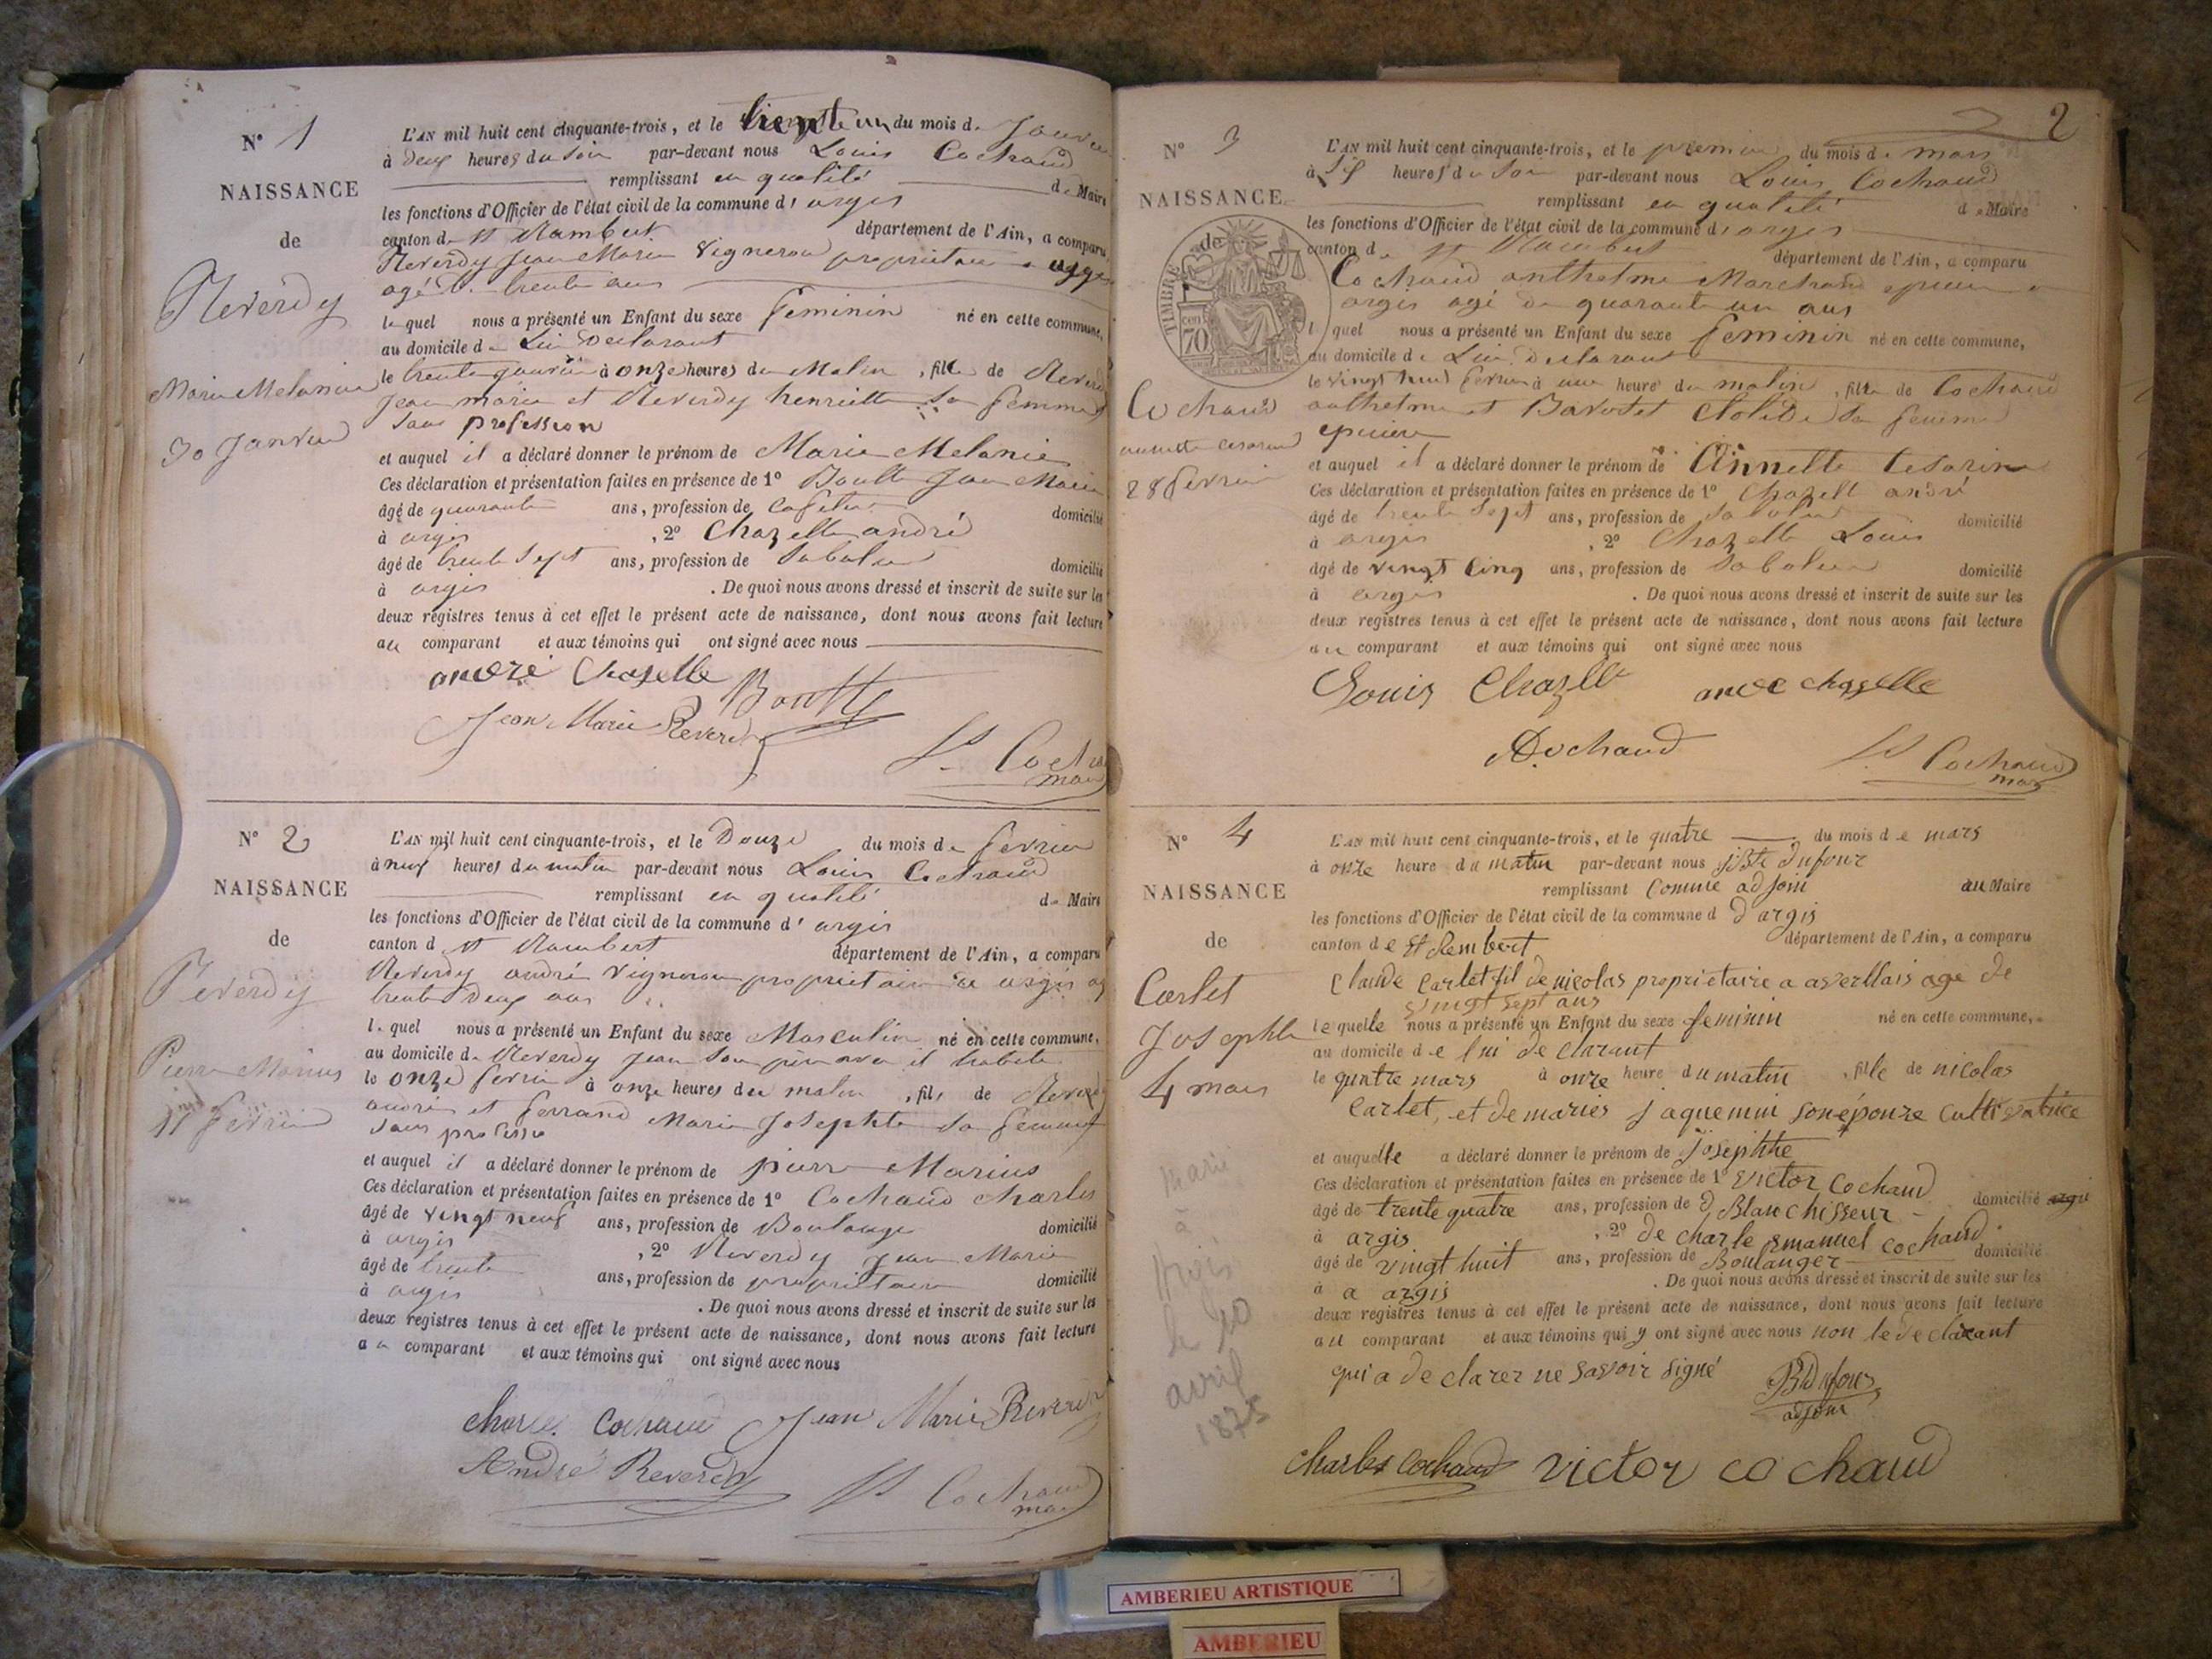 N° 1
NAISSANCE
de
Reverdy
Marie Melanie
30 Janvier
L'AN mil huit cent cinquante-trois, et le trente un du mois de Janvier
à deux heures du soir par-devant nous Louis Cochaud
remplissant en qualité de Maire
les fonctions d'Officier de l'état civil de la commune d' argis
canton de St Rambert département de l'Ain, a comparu
Reverdy Jean Marie vigneron proprietaire a argis
agé de trente ans
lequel nous a présenté un Enfant du sexe feminin né en cette commune,
au domicile de Lui declarant
le trente janvier à onze heures du Matin, fille de Reverdy
jean marie et Reverdy henriette sa femme
sans profession
et auquel il a déclaré donner le prénom de Marie Melanie
Ces déclaration et présentation faites en présence de 1° Boutte Jean Marie
âgé de quarante ans, profession de cafetier domicilié
à argis, 2° Chazelle andré
âgé de trente sept ans, profession de sabotier domicilié
à argis. De quoi nous avons dressé et inscrit de suite sur les
deux registres tenus à cet effet le présent acte de naissance, dont nous avons fait lecture
au comparant et aux témoins qui ont signé avec nous
andré Chazelle Boutte
Jean Marie Reverdy
Ls Cochaud
maire
N° 2
NAISSANCE
de
Reverdy
Pierre Marius
11 fevrier
L'AN mil huit cent cinquante-trois, et le Douze du mois de fevrier
à neuf heures du matin par-devant nous Louis Cochaud
remplissant en qualité de Maire
les fonctions d'Officier de l'état civil de la commune d' argis
canton d St Rambert département de l'Ain, a comparu
Reverdy andré vigneron propriétaire a argis agé
trente deux ans
lequel nous a présenté un Enfant du sexe Masculin né en cette commune,
au domicile de Reverdy jean son père avec il habite
le onze fevrier à onze heures du matin, fils de Reverdy
andré et ferrand Marie Josephte sa femme
sans profession
et auquel il a déclaré donner le prénom de pierre Marius
Ces déclaration et présentation faites en présence de 1° Cochaud charles
âgé de vingt neuf ans, profession de Boulanger domicilié
à argis, 2° Reverdy Jean Marie
âgé de trente ans, profession de propriétaire domicilié
à argis. De quoi nous avons dressé et inscrit de suite sur les
deux registres tenus à cet effet le présent acte de naissance, dont nous avons fait lecture
au comparant et aux témoins qui ont signé avec nous
charles Cochaud Jean Marie Reverdy
André Reverdy Ls Cochaud
maire
2
N° 3
NAISSANCE
de
TIMBRE
70
Cochaud
annette cesarine
28 fevrier
L'AN mil huit cent cinquante-trois, et le premier du mois de mars
à six heures du soir par-devant nous Louis Cochaud
remplissant en qualité de Maire
les fonctions d'Officier de l'état civil de la commune d' argis
canton de St Rambert département de l'Ain, a comparu
Cochaud anthelme Marchand epicier a
argis agé de quarante un ans
lequel nous a présenté un Enfant du sexe feminin né en cette commune,
au domicile de Lui declarant
le vingt huit fevrier à une heure du matin, fille de Cochaud
anthelme et Clotilde sa femme
epiciere
et auquel il a déclaré donner le prénom de Annette Cesarine
Ces déclaration et présentation faites en présence de 1° Chazelle andré
âgé de trente sept ans, profession de sabotier domicilié
à argis, 2° Chazelle Louis
âgé de vingt cinq ans, profession de sabotier domicilié
à argis. De quoi nous avons dressé et inscrit de suite sur les
deux registres tenus à cet effet le présent acte de naissance, dont nous avons fait lecture
au comparant et aux témoins qui ont signé avec nous
Louis Chazelle andré chazelle
A Cochaud Ls Cochaud
maire
N° 4
NAISSANCE
de
Carlet
Josephte
4 mars
marié
à
le 10
avril
1875
L'AN mil huit cent cinquante-trois, et le quatre du mois de mars
à onze heure du matin par-devant nous jBte dufour
remplissant comme adjoin au Maire
les fonctions d'Officier de l'état civil de la commune d d'argis
canton de St Rembert département de l'Ain, a comparu
Claude Carlet fil de nicolas proprietaire a averllais age de
vingt sept ans
le quelle nous a présenté un Enfant du sexe feminin né en cette commune,
au domicile de lui de clarant
le quatre mars à onze heure du matin, fille de nicolas
Carlet, et de maries jaquemin son épouze cultivatrice
et auquelle a déclaré donner le prénom de Josephte
Ces déclaration et présentation faites en présence de 1° victor Cochaud
âgé de trente quatre ans, profession de d Blanchisseur domicilié argis
à argis, 2° de charle emanuel cochaud
âgé de vingt huit ans, profession de Boulanger domicilié
à a argis. De quoi nous avons dressé et inscrit de suite sur les
deux registres tenus à cet effet le présent acte de naissance, dont nous avons fait lecture
au comparant et aux témoins qui y ont signé avec nous non le de clarant
qui a de clarer ne savoir signé
JB dufour
adjoin
charles Cochaud victor cochaud
AMBERIEU ARTISTIQUE
AMBERIEU